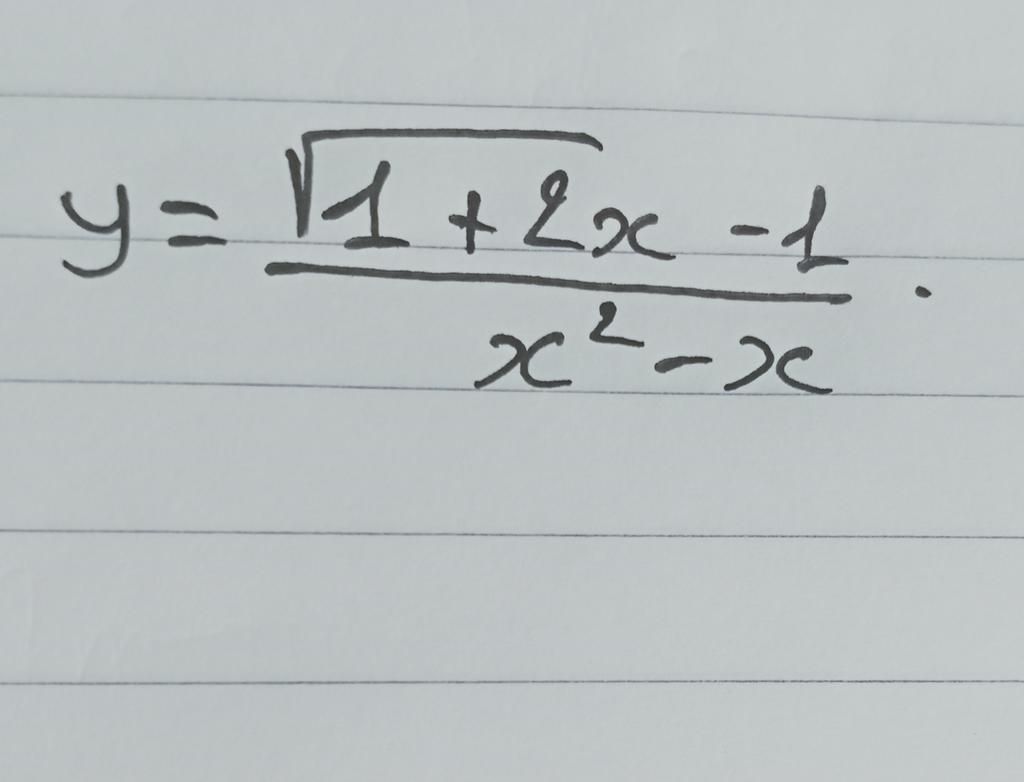 y = \frac{\sqrt{1 + 2x} - 1}{x^2 - x}.